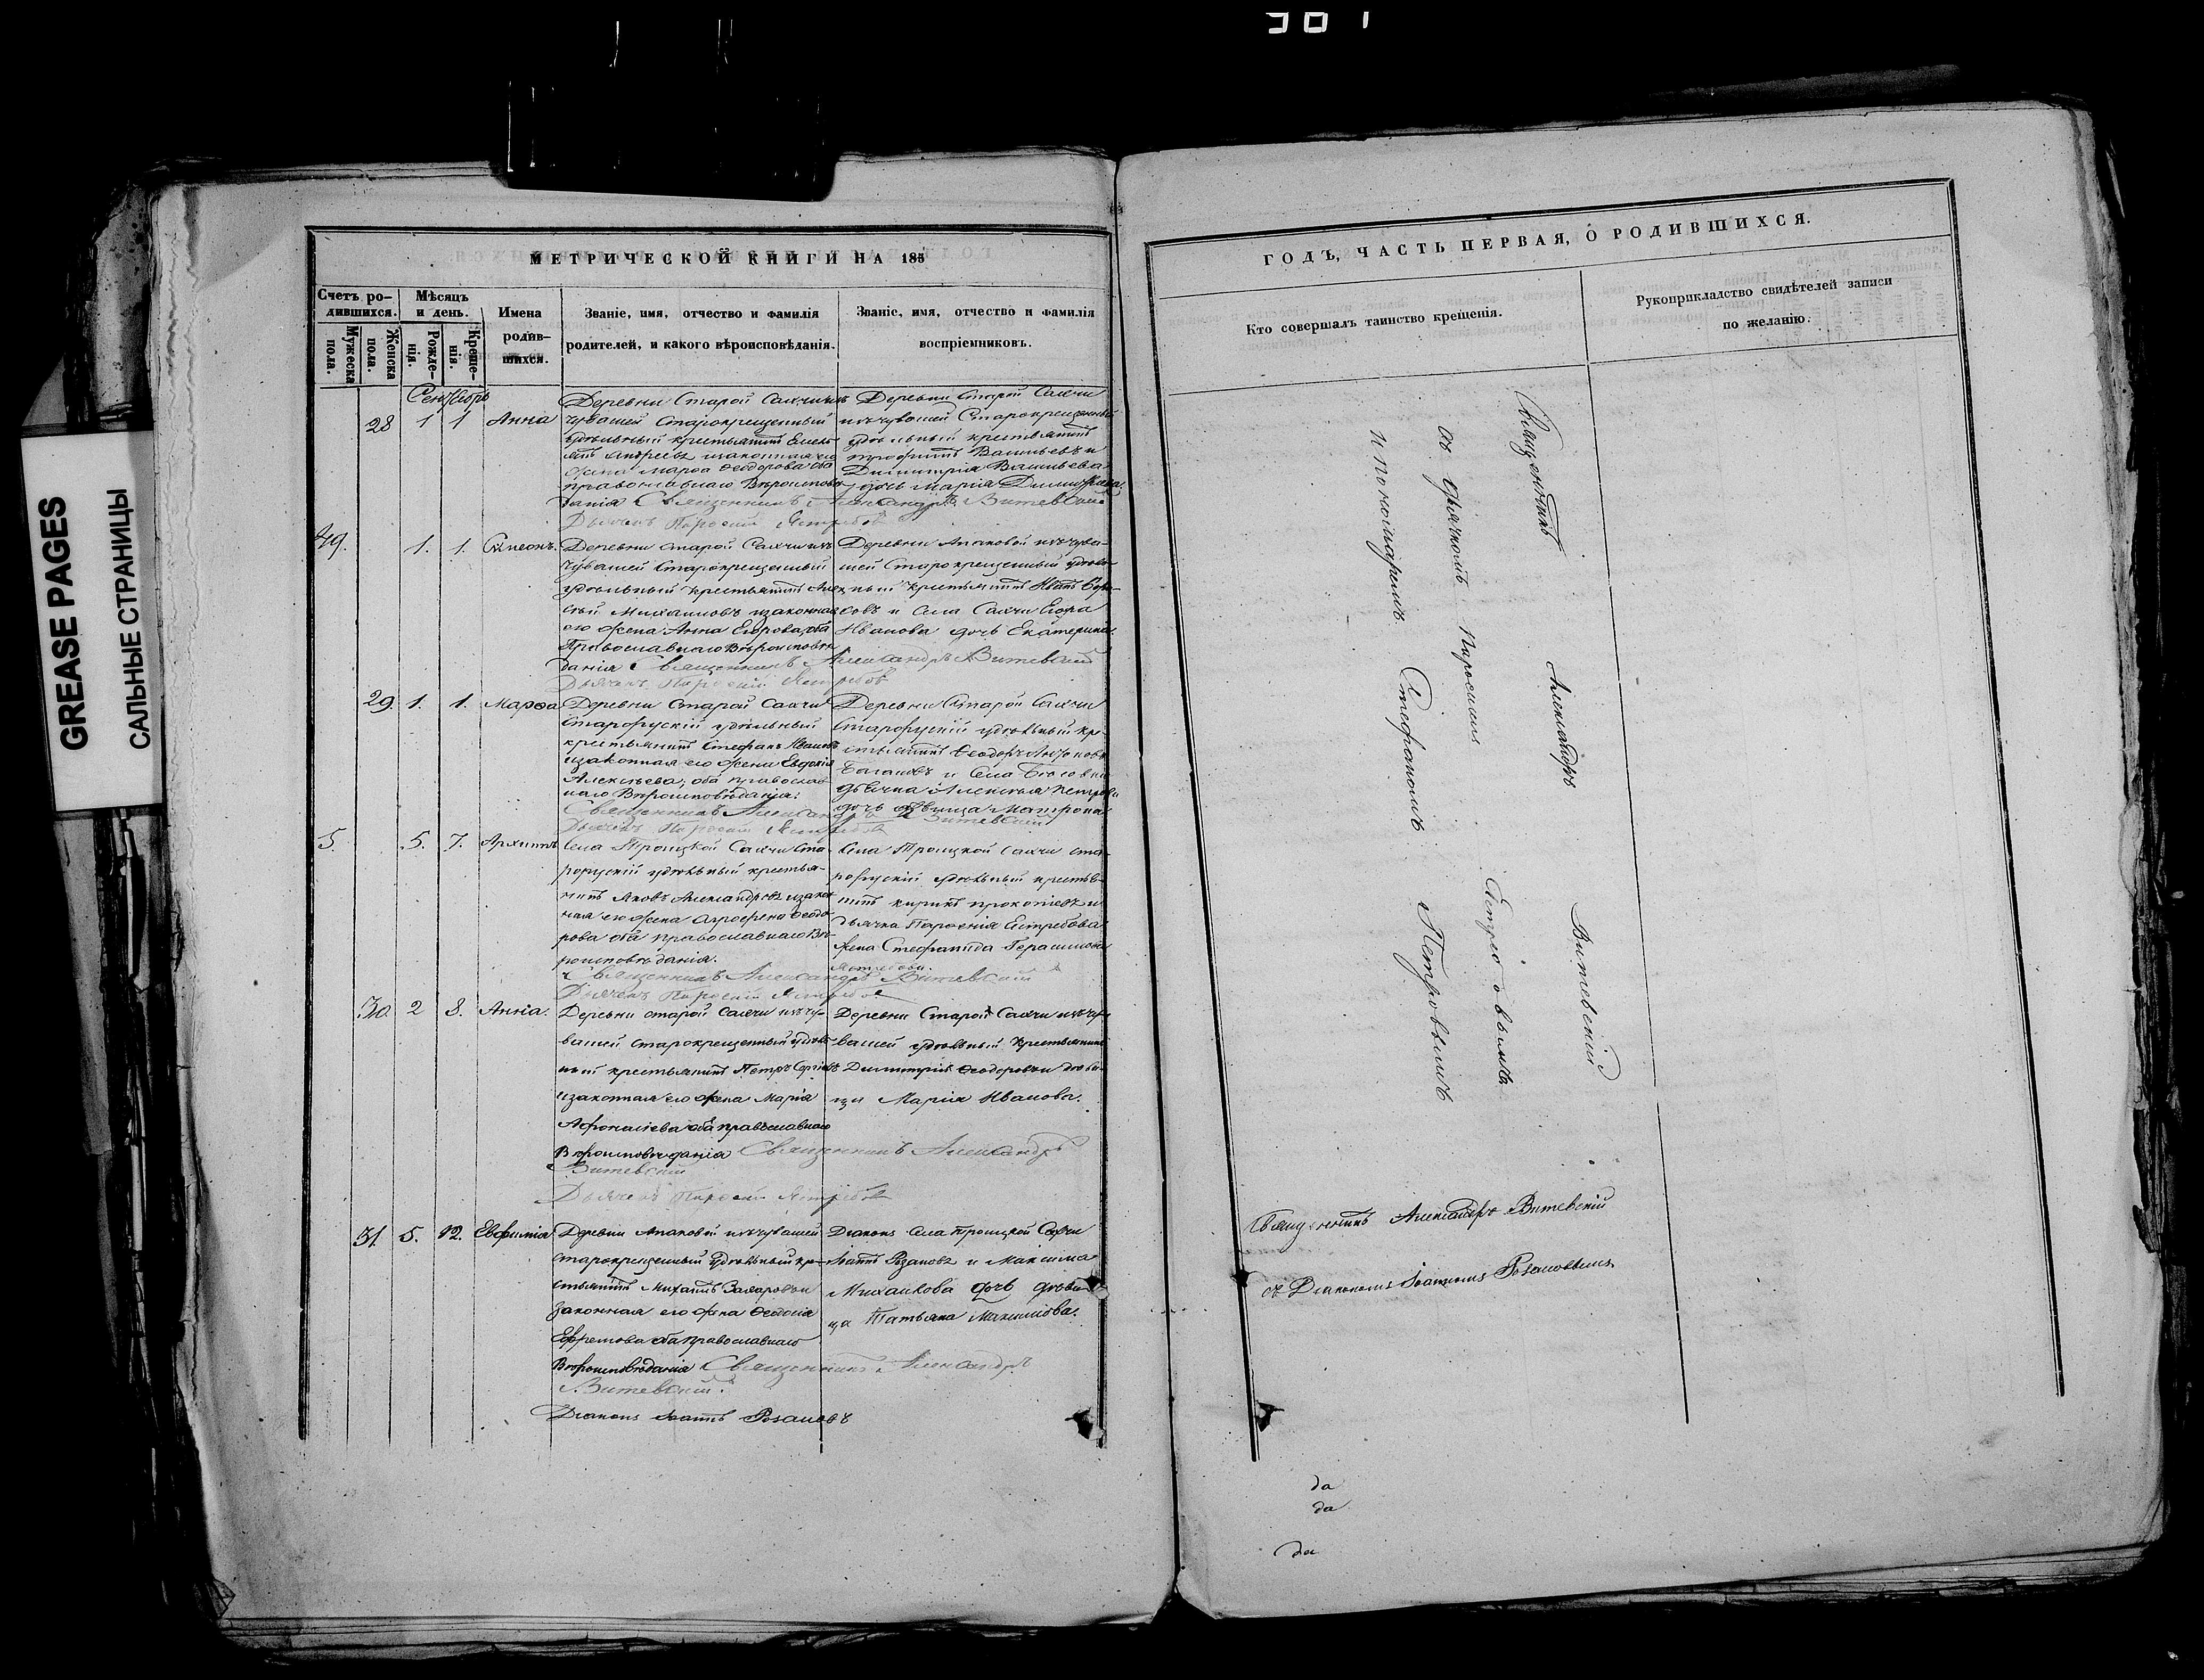 301
GREASE PAGES
САЛЬНЫЕ СТРАНИЦЫ
МЕТРИЧЕСКОЙ КНИГИ НА 185
Счетъ ро-
дившихся.
Мужеска
пола.
Женска
пола.
Мѣсяцъ
и день.
Рожде-
нія.
Креще-
нія.
Имена
родив-
шихся.
Званіе, имя, отчество и фамилія
родителей, и какого вѣроисповѣданія.
Званіе, имя, отчество и фамилія
воспріемниковъ.
Сентябрь
28 1 1 Анна
Деревни Старой Сахчи изъ
чувашей Старокрещенный
удѣльный крестьянинъ
Андреевъ и законная его
жена Марѳа Ѳеодорова оба
православнаго Вѣроисповѣ-
данія Священникъ Александръ Витевскій
Дьячекъ Парѳеній Ястребовъ
Деревни Старой Сахчи
изъ чувашей Старокрещенный
удѣльный крестьянинъ
Трофимъ Васильевъ и
Димитрія Васильева
дочь Марія Димитріева
49. 1. 1. Симеонъ.
Деревни старой Сахчи изъ
чувашей Старокрещенный
удѣльный крестьянинъ Алек-
сѣй Михаиловъ и законная
его жена Анна Егорова, оба
Православнаго Вѣроисповѣ-
данія Священникъ Александръ Витевскій
Дьячекъ Парѳеній Ястребовъ
Деревни Апаковой изъ чува-
шей Старокрещенный удѣль-
ный крестьянинъ Иванъ Бори-
совъ и Села Сахчи Егора
Иванова дочь Екатерина.
29 1. 1. Марѳа
Деревни Старой Сахчи
Старорускій удѣльный
крестьянинъ Стефанъ Ивановъ
и законная его жена Евдокія
Алексѣева, оба православ-
наго Вѣроисповѣданія.
Священникъ Александръ Витевскій
Дьячекъ Парѳеній Ястребовъ
Деревни Старой Сахчи
Старорускій удѣльный кре-
стьянинъ Ѳеодоръ
и Села
дьячка Алексѣя Петрова
дочь дѣвица Матрона
5. 5. 7. Архипъ
Села Троицкой Сахчи Ста-
рорускій удѣльный крестья-
нинъ Яковъ Александровъ и закон-
ная его жена Агрофена Ѳеодо-
рова оба православнаго Вѣ-
роисповѣданія.
Священникъ Александръ Витевскій
Дьячекъ Парѳеній Ястребовъ
Села Троицкой Сахчи ста-
рорускій удѣльный крестья-
нинъ Кирилъ Прокопіевъ и
дьячка Парѳенія Ястребова
жена Стефанида Герасимова
Ястребова.
30 2 8. Анна.
Деревни старой Сахчи изъ чу-
вашей старокрещенный удѣль-
ный крестьянинъ Петръ Сергіевъ
и законная его жена Марія
Афонасіева оба православнаго
Вѣроисповѣданія Священникъ Александръ
Витевскій
Дьячекъ Парѳеній Ястребовъ
Деревни Старой Сахчи изъ чу-
вашей удѣльный крестьянинъ
Димитрій Ѳеодоровъ и дѣви-
ца Марія Иванова.
31 5. 12. Евфимія
Деревни Апаковой изъ чувашей
старокрещенный удѣльный кре-
стьянинъ Михаилъ Захаровъ и
законная его жена Ѳеодосія
Ефремова оба православнаго
Вѣроисповѣданія Священникъ Александръ
Витевскій.
Діаконъ Іоаннъ Розановъ
Діаконъ Села Троицкой Сахчи
Іоаннъ Розановъ и Максима
Михаилова дочь дѣви-
ца Татьяна Максимова.
ГОДЪ, ЧАСТЬ ПЕРВАЯ, О РОДИВШИХСЯ.
Кто совершалъ таинство крещенія.
Рукоприкладство свидѣтелей записи
по желанію.
Священникъ Александръ Витевскій
съ дьячкомъ Парѳеніемъ Ястребовымъ
и пономаремъ Стефаномъ Петровымъ
Священникъ Александръ Витевскій
съ Діакономъ Іоанномъ Розановымъ
да
да
да